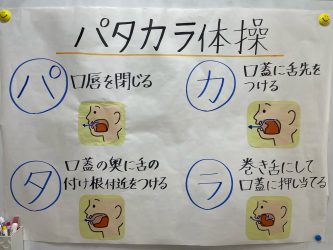 パタカラ体操
パ
口唇を閉じる
カ
口蓋に舌先を
つける
タ
口蓋の奥に舌の
付け根付近をつける
ラ
巻き舌にして
口蓋に押し当てる